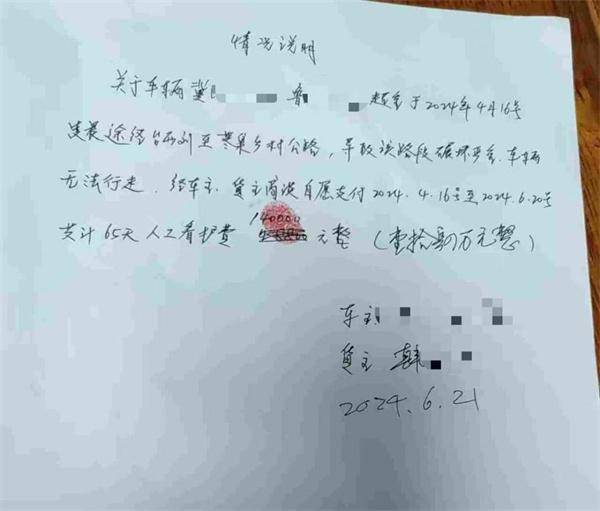 情况说明
关于车辆冀 鲁 超重于2024年4月16号
凌晨途经 列至 乡村公路，导致该路段破坏严重、车辆
无法行走，经车主、货主商议自愿支付2024.4.16号至2024.6.20号
共计65天人工看护费 140000 元整（壹拾肆万元整）
车主
货主 韩
2024.6.21